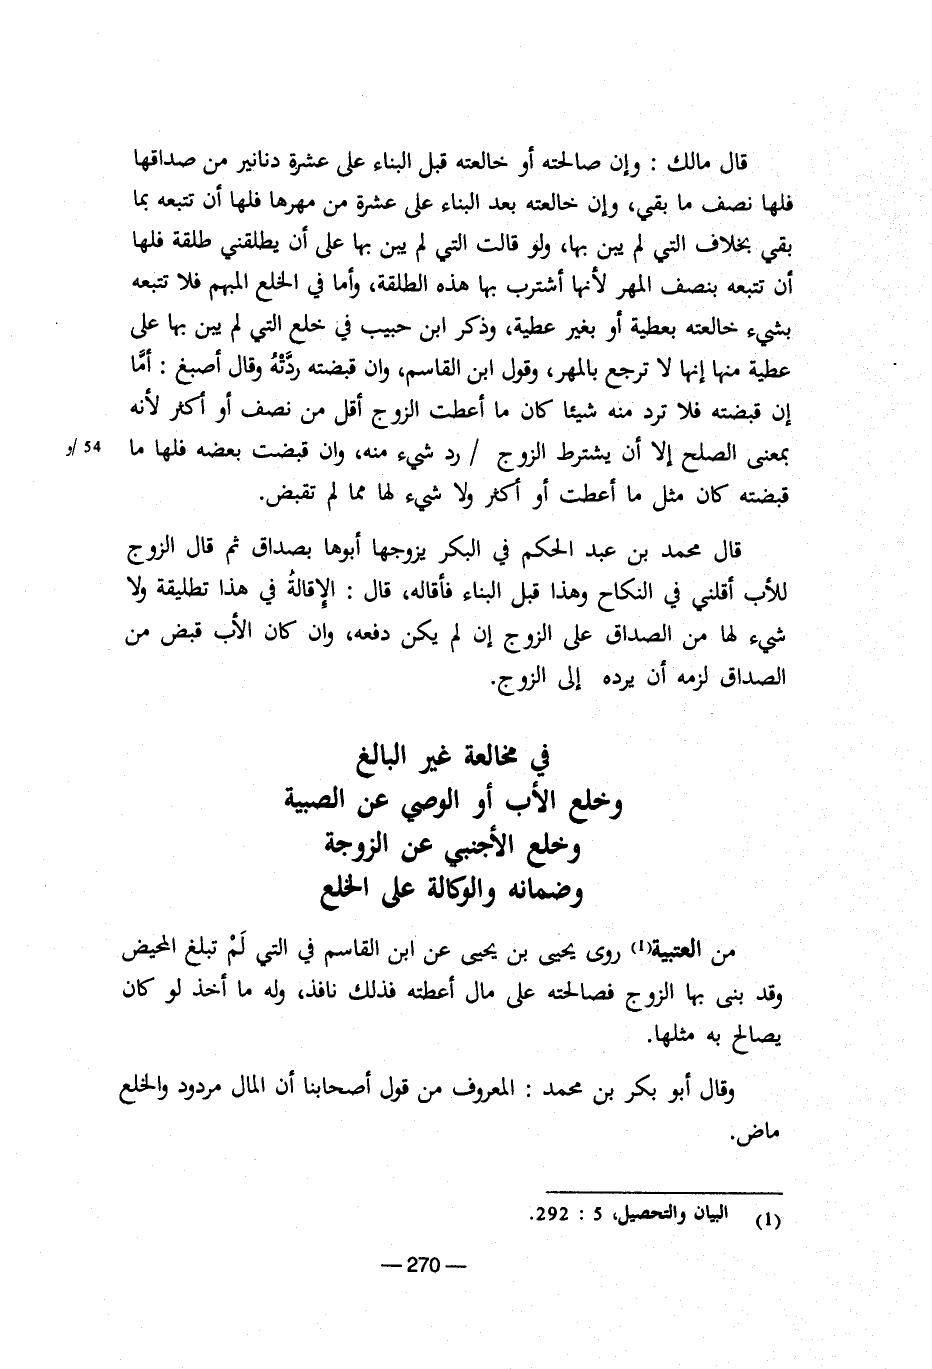 قال مالك : وإن صالحته أو خالعته قبل البناء على عشرة دنانير من صداقها
فلها نصف ما بقي، وإن خالعته بعد البناء على عشرة من مهرها فلها أن تتبعه بما
بقي بخلاف التي لم يبن بها، ولو قالت التي لم يبن بها على أن يطلقني طلقة فلها
أن تتبعه بنصف المهر لأنها أشترب بها هذه الطلقة، وأما في الخلع المبهم فلا تتبعه
بشيء خالعته بعطية أو بغير عطية، وذكر ابن حبيب في خلع التي لم يبن بها على
عطية منها إنها لا ترجع بالمهر، وقول ابن القاسم، وان قبضته ردَّتْهُ وقال أصبغ : أمَّا
إن قبضته فلا ترد منه شيئا كان ما أعطت الزوج أقل من نصف أو أكثر لأنه
بمعنى الصلح إلا أن يشترط الزوج / رد شيء منه، وان قبضت بعضه فلها ما
54 /و
قبضته كان مثل ما أعطت أو أكثر ولا شيء لها مما لم تقبض.
قال محمد بن عبد الحكم في البكر يزوجها أبوها بصداق ثم قال الزوج
للأب أقلني في النكاح وهذا قبل البناء فأقاله، قال : الإقالةُ في هذا تطليقة ولا
شيء لها من الصداق على الزوج إن لم يكن دفعه، وان كان الأب قبض من
الصداق لزمه أن يرده إلى الزوج.
في مخالعة غير البالغ
وخلع الأب أو الوصي عن الصبية
وخلع الأجنبي عن الزوجة
وضمانه والوكالة على الخلع
من العتبية(1) روى يحيى بن يحيى عن ابن القاسم في التي لَمْ تبلغ المحيض
وقد بنى بها الزوج فصالحته على مال أعطته فذلك نافذ، وله ما أخذ لو كان
يصالح به مثلها.
وقال أبو بكر بن محمد : المعروف من قول أصحابنا أن المال مردود والخلع
ماض.
(1) البيان والتحصيل، 5 : 292.
— 270 —